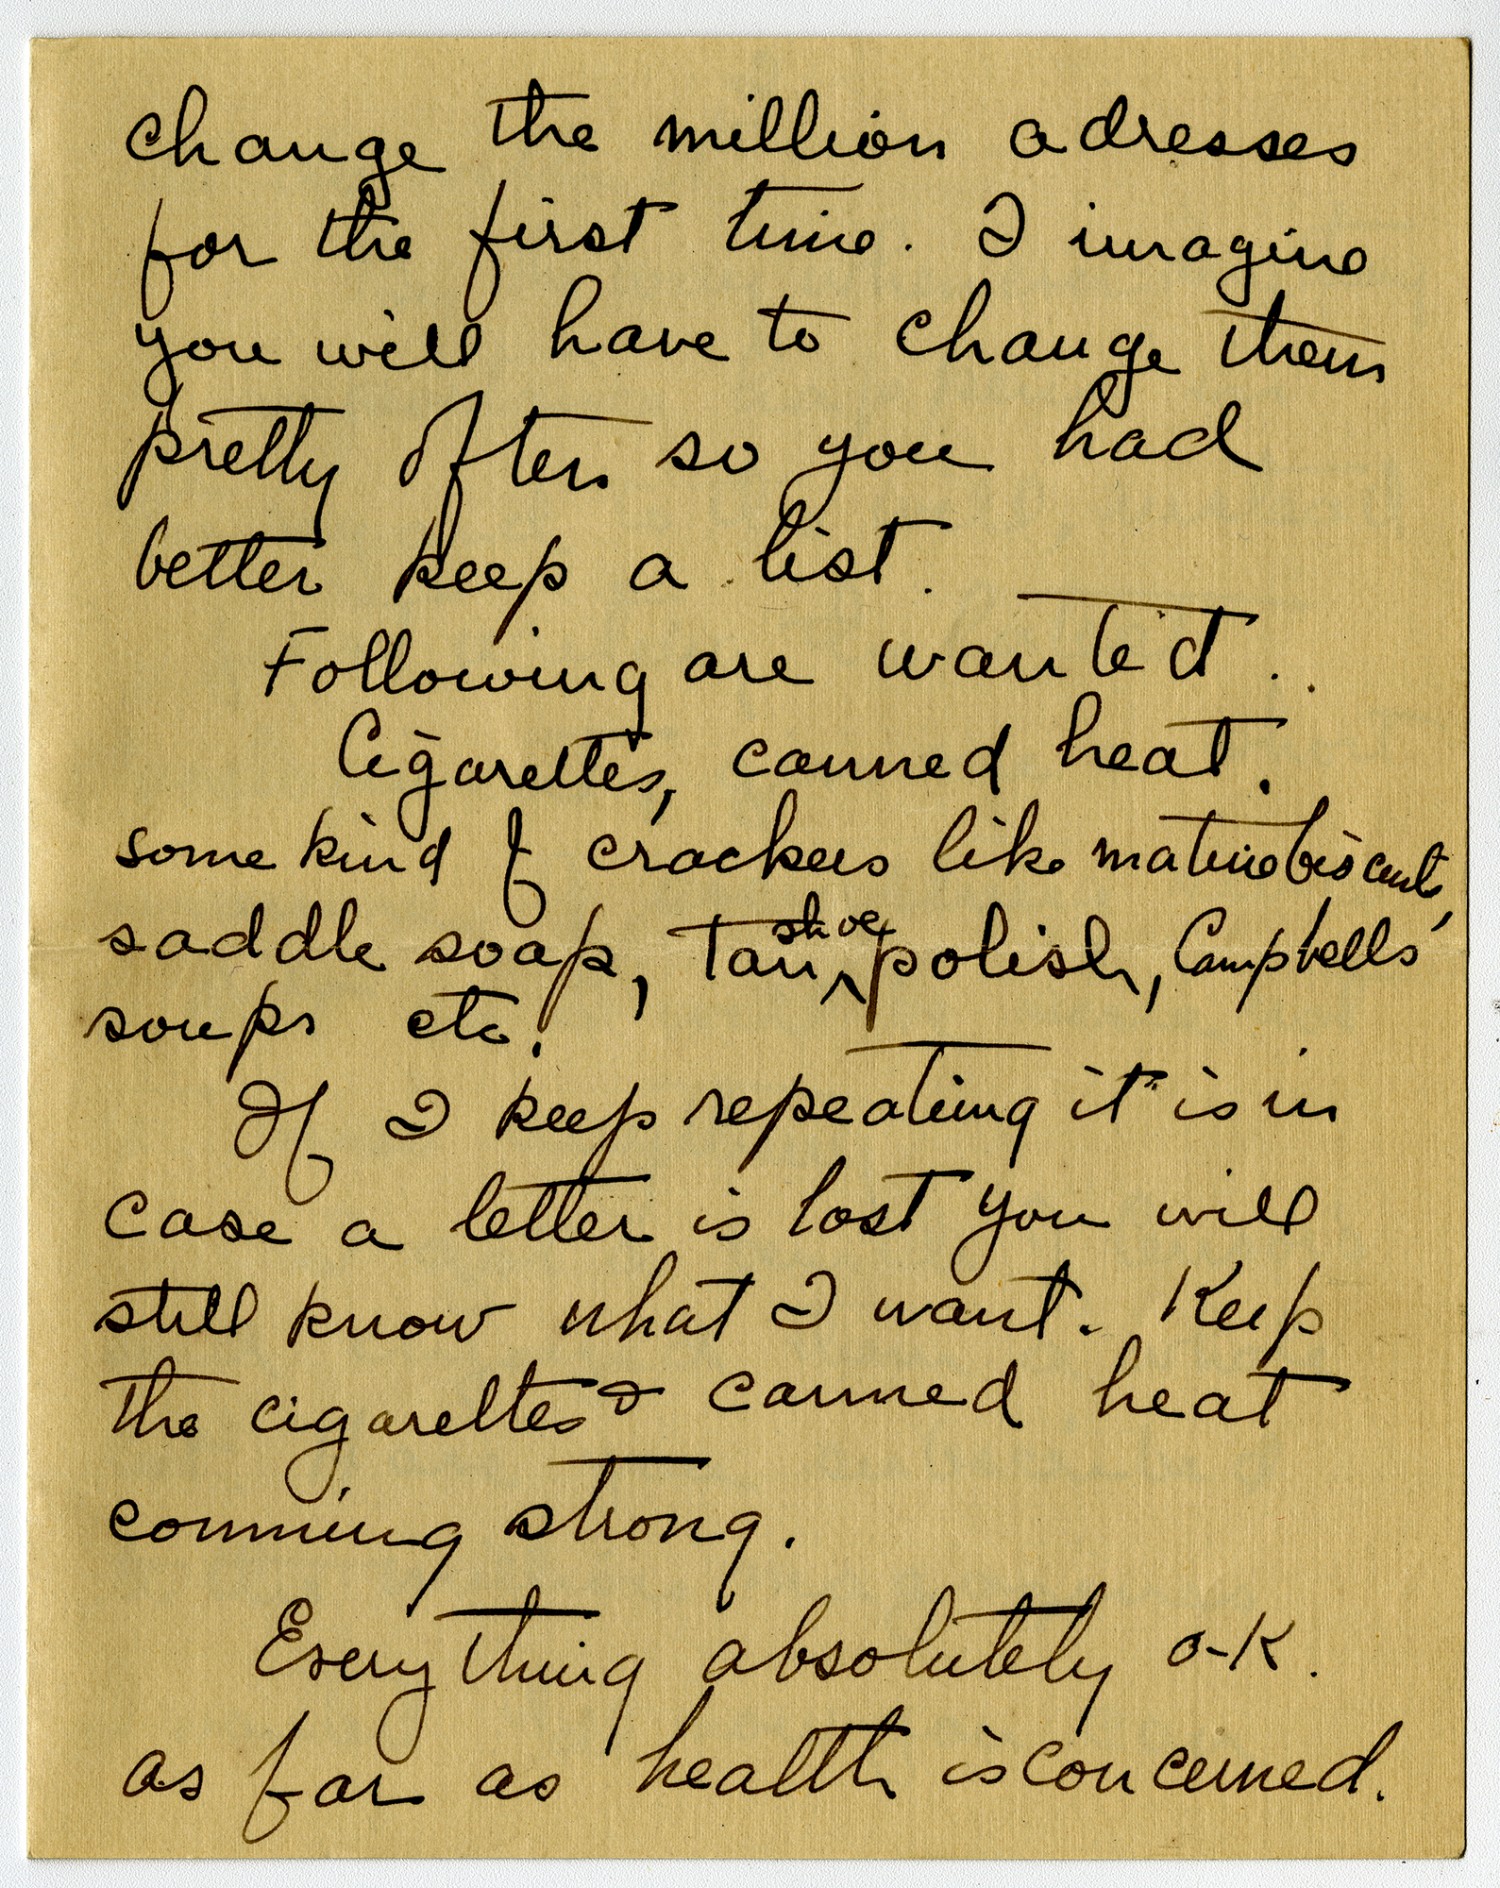 change the million adresses
for the first time. I imagine
you will have to change them
pretty often so you had
better keep a list.
Following are wanted..
Cigarettes, canned heat.
some kind of crackers like matinebiscuits,
saddle soap, Tan shoe polish, Campbells'
soups etc.
If I keep repeating it is in
case a letter is lost you will
still know what I want. Keep
the cigarettes & canned heat
comming strong.
Everything absolutely o-K.
as far as health is concerned.